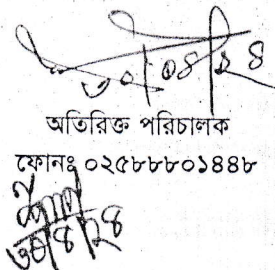 ৩০/০৪/২৪
অতিরিক্ত পরিচালক
ফোনঃ ০২৫৮৮৮০১৪৪৮
৩০/৪/২৪